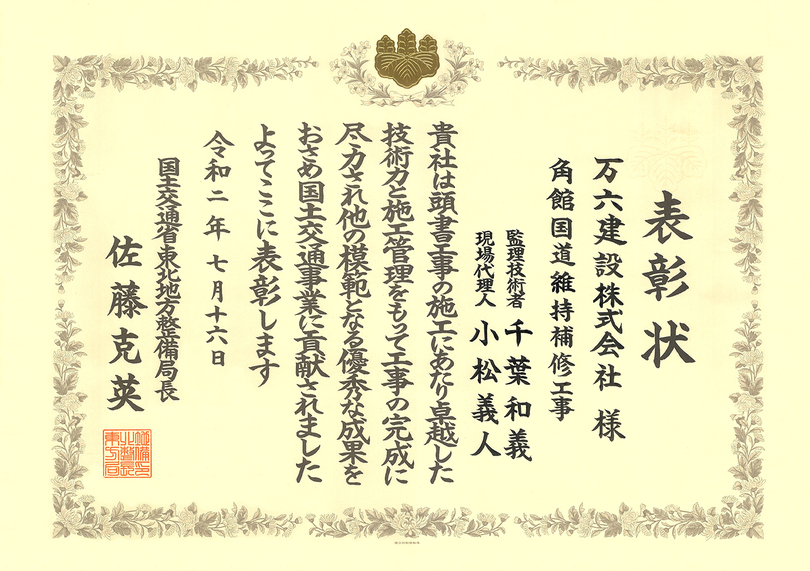 表彰状
万六建設株式会社 様
角館国道維持補修工事
監理技術者 千葉和義
現場代理人 小松義人
貴社は頭書工事の施工にあたり卓越した
技術力と施工管理をもって工事の完成に
尽力され他の模範となる優秀な成果を
おさめ国土交通事業に貢献されました
よってここに表彰します
令和二年七月十六日
国土交通省東北地方整備局長
佐藤克英